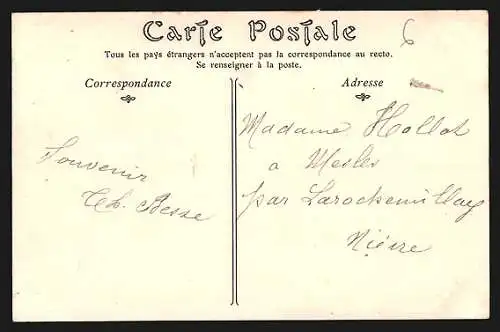 Carte Postale
6
Tous les pays étrangers n'acceptent pas la correspondance au recto.
Se renseigner à la poste.
Correspondance
Souvenir
Th. Besse
Adresse
Madame Hollot
a Mesles
par Larochemillay
Nièvre